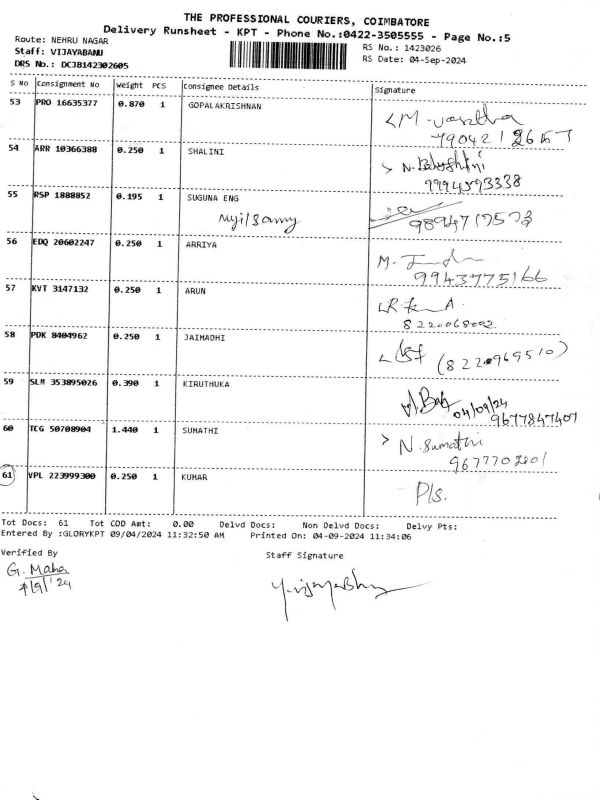 THE PROFESSIONAL COURIERS, COIMBATORE
Delivery Runsheet - KPT - Phone No.:0422-3505555 - Page No.:5
Route: NEHRU NAGAR
RS No.: 1423026
Staff: VIJAYABANU
RS Date: 04-Sep-2024
DRS No.: DCJB142302605
S No Consignment No Weight PCS Consignee Details Signature
53 PRO 16635377 0.870 1 GOPALAKRISHNAN
54 ARR 10366388 0.250 1 SHALINI
55 RSP 1888852 0.195 1 SUGUNA ENG
56 EDQ 20602247 0.250 1 ARRIYA
M.
9943775166
57 KVT 3147132 0.250 1 ARUN
8220068002
58 PDK 8404962 0.250 1 JAIMADHI
(8220969510)
59 SLM 353895026 0.390 1 KIRUTHUKA
04/09/24
9677847407
60 TCG 50708904 1.440 1 SUMATHI
N. Sumathi
61 VPL 223999300 0.250 1 KUMAR
Pls.
Tot Docs: 61 Tot COD Amt: 0.00 Delvd Docs: Non Delvd Docs: Delvy Pts:
Entered By :GLORYKPT 09/04/2024 11:32:50 AM Printed On: 04-09-2024 11:34:06
Verified By Staff Signature
G. Maha
4/9/'24